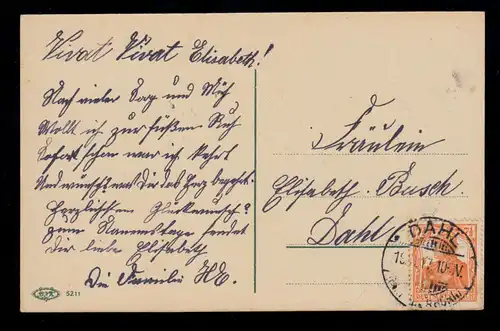 Vivat Vivat Elisabeth!
Nach vieler Sorg und Müh
Wollt ich zur süßen Ruh
Sofort schon war ich
Und wünscht Dir das Herz
Herzlichsten Glückwunsch!
zum Namenstage sendet
Dir liebe Elisabeth
Die Familie
Fräulein
Elisabeth Busch
Dahl
DAHL
5211